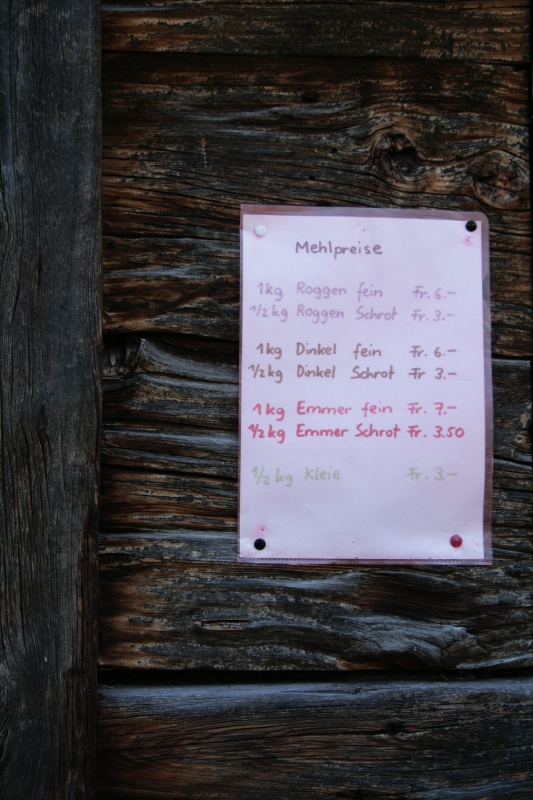 Mehlpreise
1kg Roggen fein Fr. 6.–
1/2 kg Roggen Schrot Fr. 3.–
1kg Dinkel fein Fr. 6.–
1/2 kg Dinkel Schrot Fr. 3.–
1kg Emmer fein Fr. 7.–
1/2 kg Emmer Schrot Fr. 3.50
1/2 kg Kleie Fr. 3.–